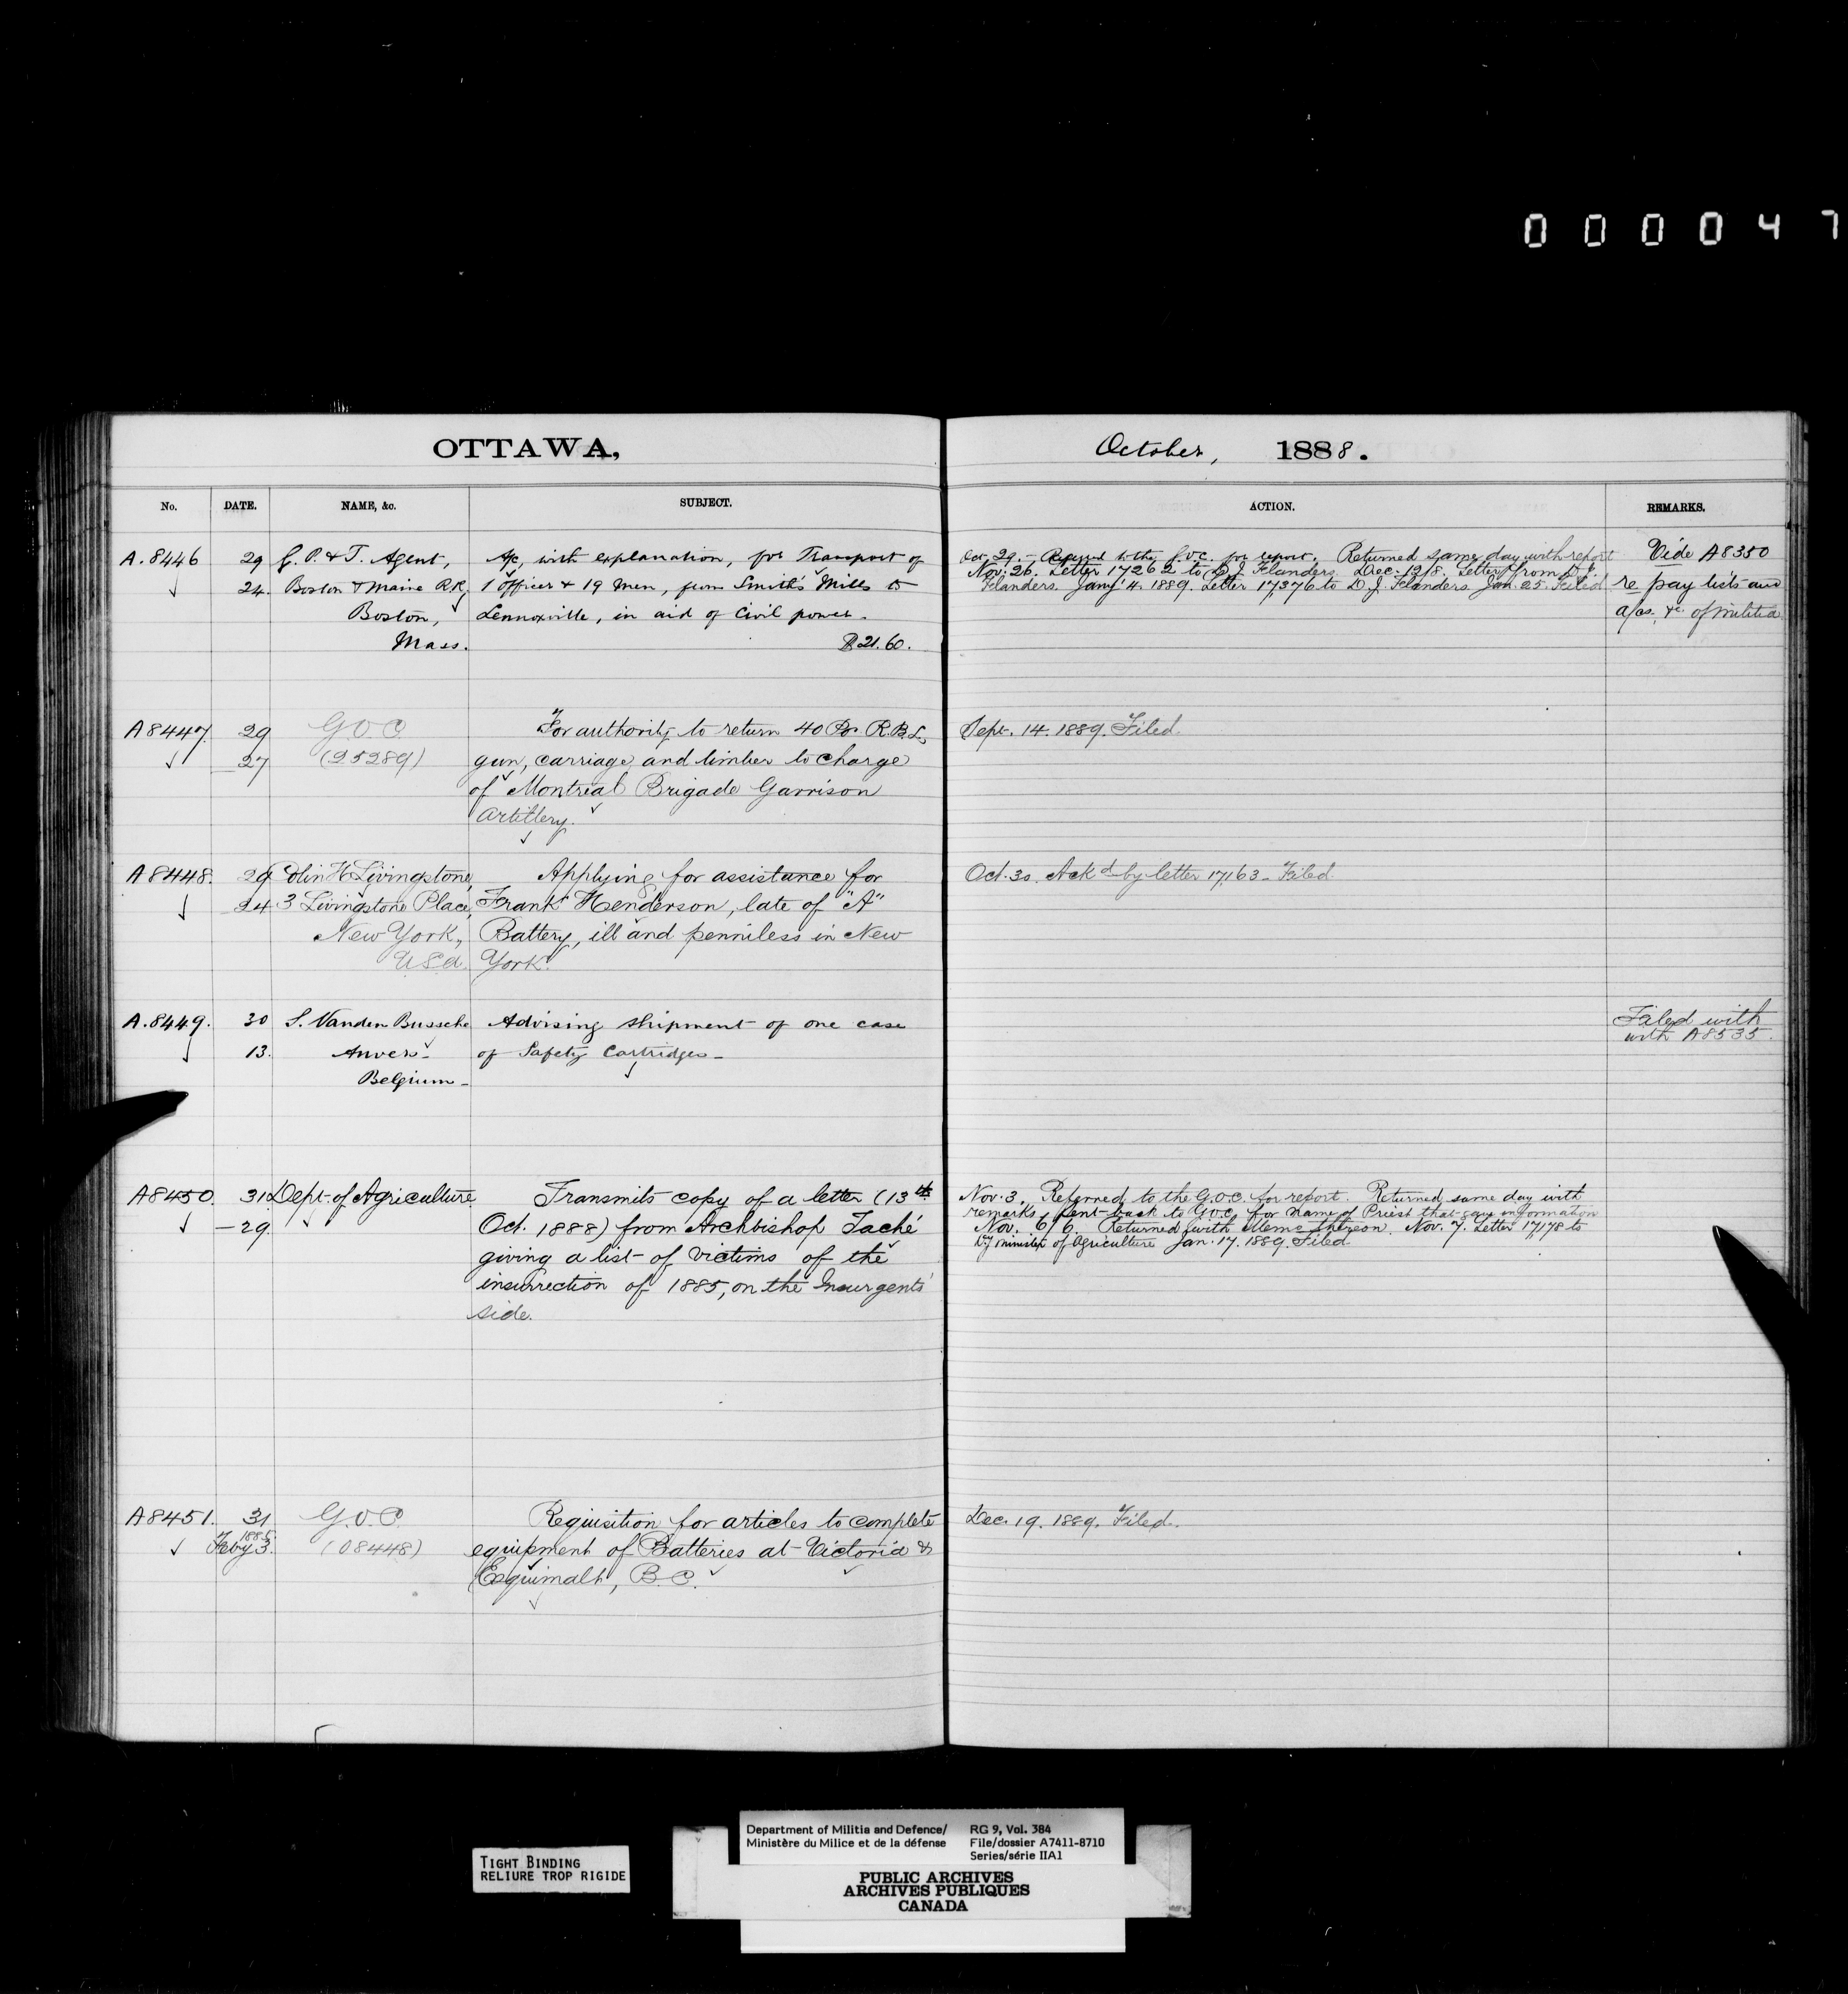 0 0 0 0 4 7
OTTAWA,
October, 1888.
No. DATE. NAME, &c. SUBJECT. ACTION. REMARKS.
A.8446 29 G. P. & T. Agent, A/c, with explanation, for Transport of
24. Boston & Maine R.R, 1 Officer & 19 Men, from Smith's Mills to
Boston, Lennoxville, in aid of Civil power.
Mass. $21.60.
Oct. 29. - Referred to the G.O.C. for report. Returned same day with report
Nov. 26. Letter 17262 to D. J. Flanders. Dec. 12/8. Letter from D. J.
Flanders. Jany 4. 1889. Letter 17376 to D. J. Flanders. Jan. 25. Filed
Vide A8350
re pay lists and
a/cs, &c. of militia
A8447. 29 G.O.C. For authority to return 40 Pr. R.B.L.
27 (25289) gun, carriage, and limber to charge
of Montreal Brigade Garrison
Artillery.
Sept. 14. 1889. Filed.
A8448. 29 Colin H. Livingstone, Applying for assistance for
24 3 Livingstone Place, Frank Henderson, late of "A"
New York, Battery, ill and penniless in New
U.S.a. York.
Oct. 30. Ackd by letter 17163 - Filed.
A.8449. 30 S. Vanden Bussche Advising shipment of one case
13. Anvers - of Safety Cartridges -
Belgium -
Filed with
with A8535.
A8450. 31 Dept. of Agriculture. Transmits copy of a letter (13th
- 29. Oct. 1888) from Archbishop Taché
giving a list of victims of the
insurrection of 1885, on the Insurgents'
side.
Nov. 3. Referred to the G.O.C. for report. Returned same day with
remarks, sent back to G.O.C. for name of Priest that gave information
Nov. 6/6. Returned with Memo thereon. Nov. 7. Letter 17178 to
Dy minister of Agriculture Jan. 17. 1889. Filed
A8451. 31 G.O.C. Requisition for articles to complete
1885.
Feby 3. (08448) equipment of Batteries at Victoria &
Esquimalt, B.C.
Dec. 19. 1889. Filed.
TIGHT BINDING
RELIURE TROP RIGIDE
Department of Militia and Defence/ RG 9, Vol. 384
Ministère du Milice et de la défense File/dossier A7411-8710
Series/série IIA1
PUBLIC ARCHIVES
ARCHIVES PUBLIQUES
CANADA